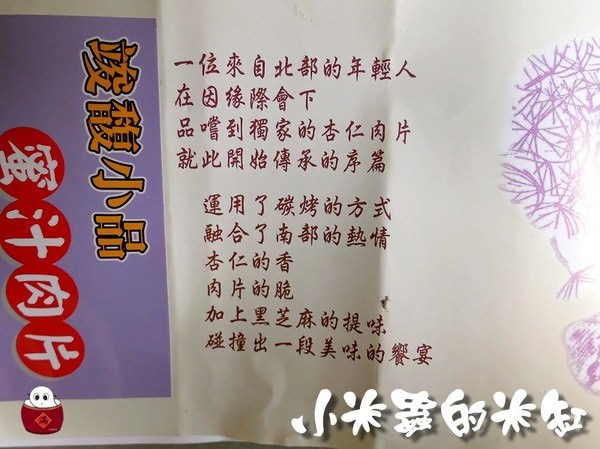 竣馥小品
蜜汁肉片
一位來自北部的年輕人
在因緣際會下
品嚐到獨家的杏仁肉片
就此開始傳承的序篇
運用了碳烤的方式
融合了南部的熱情
杏仁的香
肉片的脆
加上黑芝麻的提味
碰撞出一段美味的饗宴
小米蟲的米缸